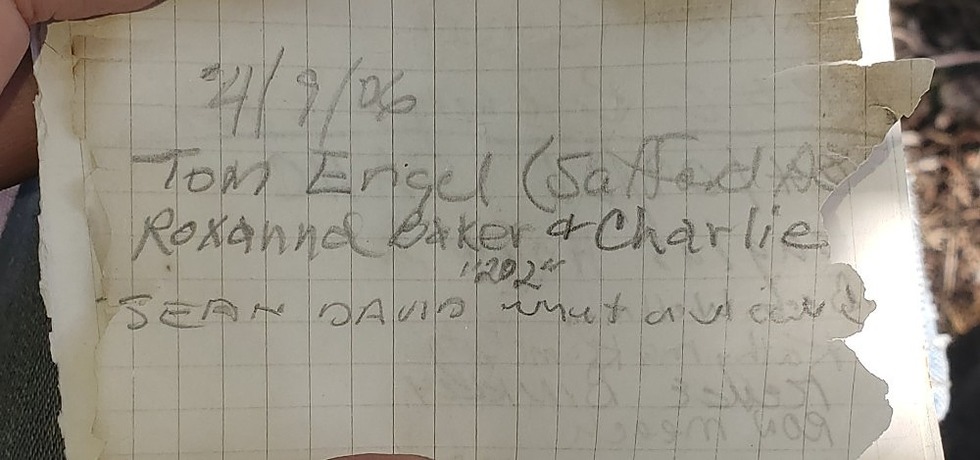 4/9/06
Tom Engel (Safford AZ
Roxanna Baker & Charlie
"202"
SEAN DAVID what a